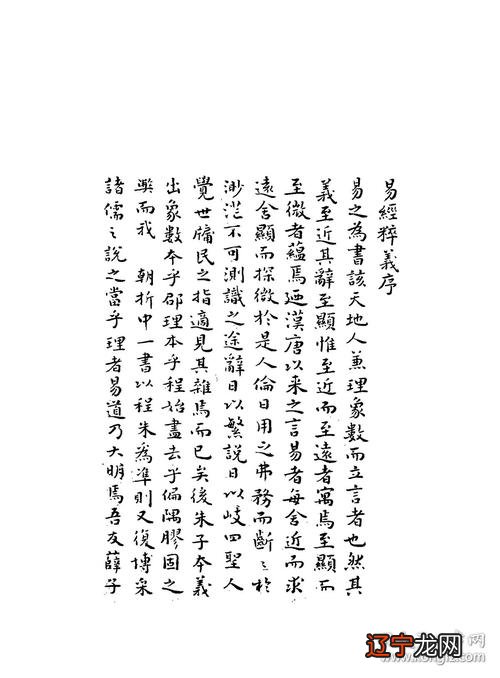 易經粹義序
易之為書該天地人兼理象數而立言者也然其
義至近其辭至顯惟至近而至遠者寓焉至顯而
至微者蘊焉廼漢唐以来之言易者每舍近而求
遠舍顯而探微於是人倫日用之弗務而斷〻於
渺茫不可測識之途辭日以繁說日以岐四聖人
覺世牖民之指適見其雜焉而已矣後朱子本義
出象數本乎邵理本乎程始盡去乎偏隅膠固之
獘而我 朝折中一書以程朱為準則又復博采
諸儒〻說之當乎理者易道乃大明焉吾友薛子
辽宁龙网
www.kongfz.com